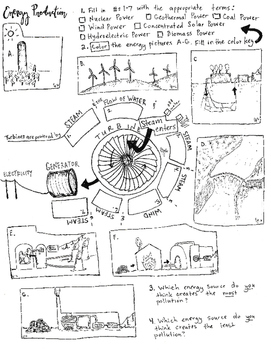 Energy Production
1. Fill in #'s 1-7 with the appropriate terms:
Nuclear Power Geothermal Power Coal Power
Wind Power Concentrated Solar Power
Hydroelectric Power Biomass Power
2. Color the energy pictures A-G. fill in the color key
A.
B.
C.
STEAM
FLOW OF WATER
STEAM
Turbines are powered by
TURBINE
Steam enters
STEAM
GENERATOR
ELECTRICITY
STEAM
D.
WIND
STEAM
E.
F.
G.
3. Which energy source do you
think creates the most
pollution?
4. Which energy source do you
think creates the least
pollution?